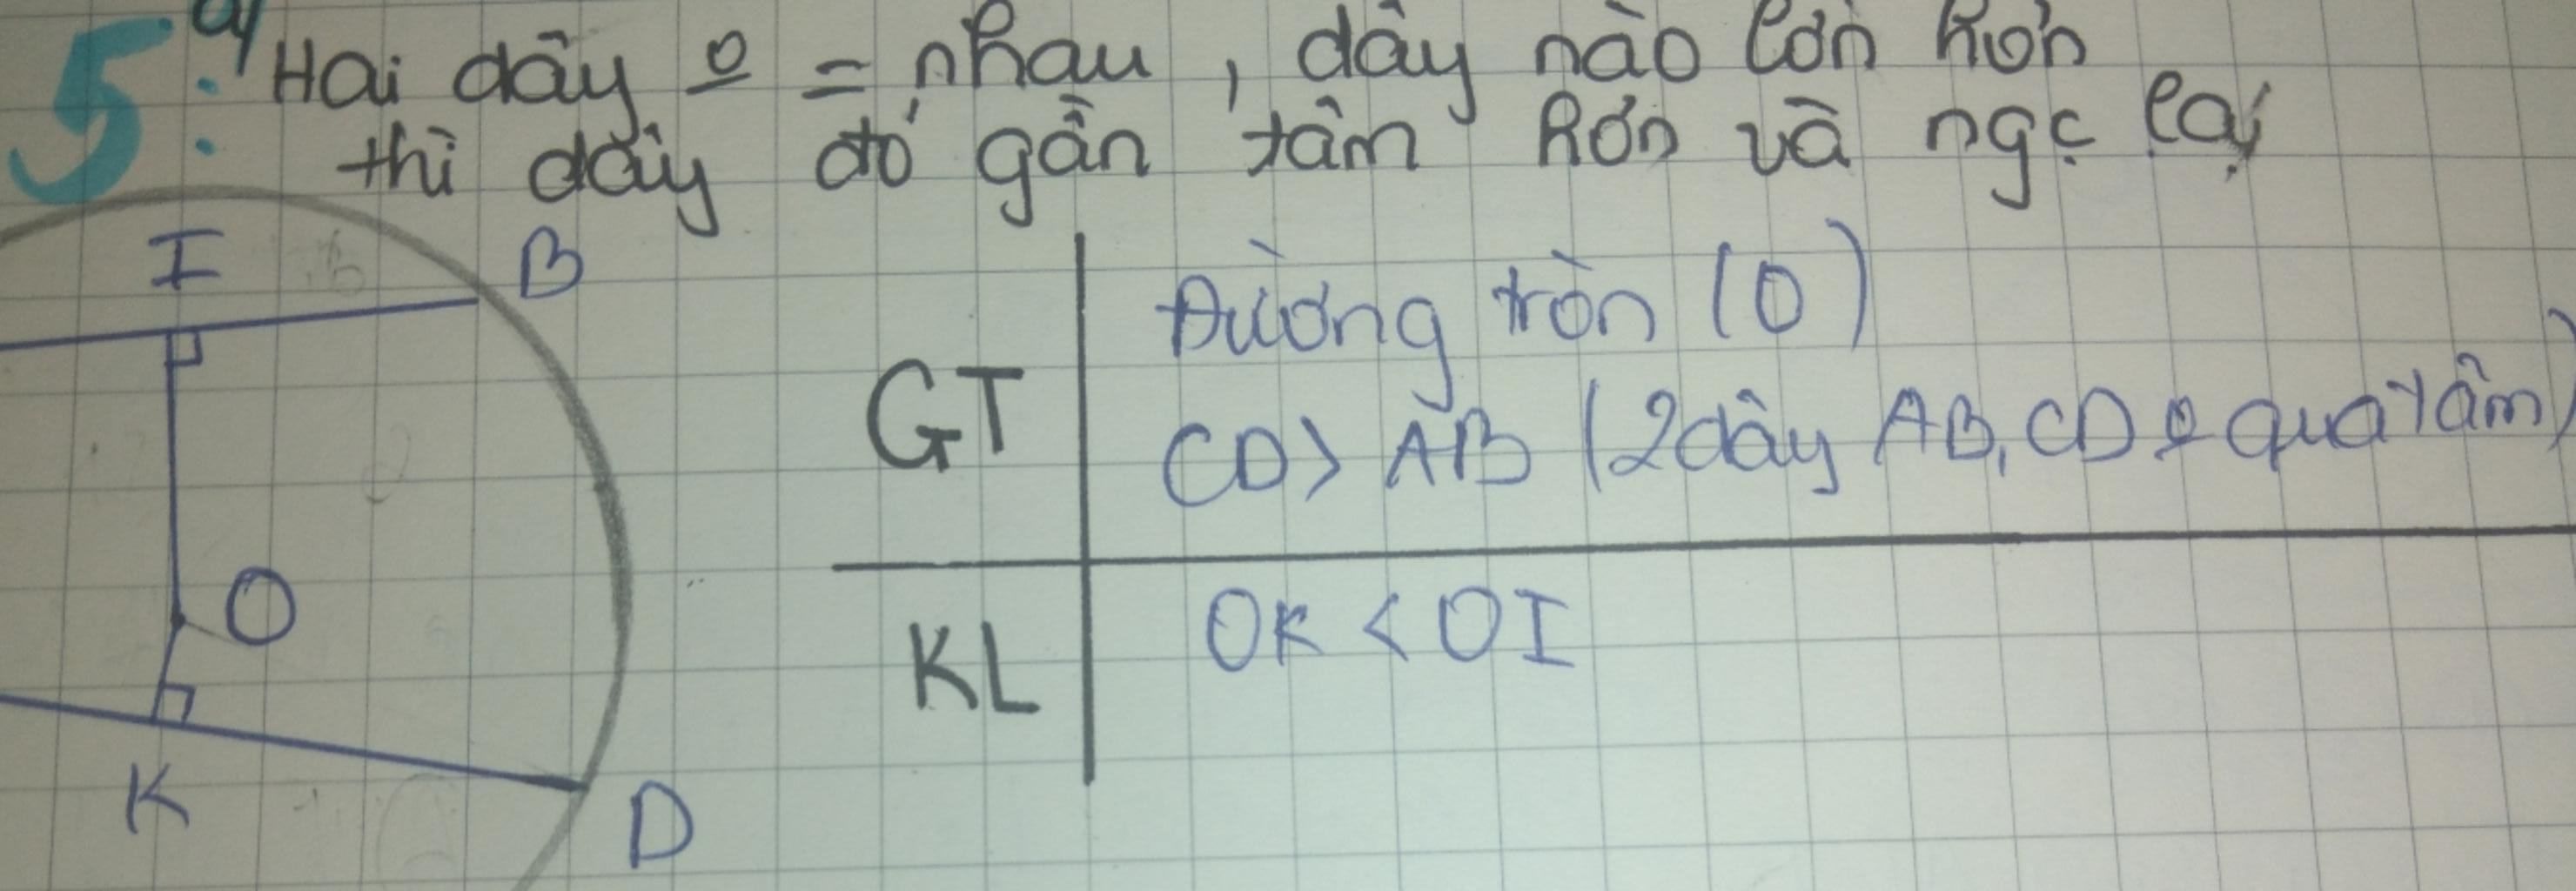 5: a/ Hai dây o = nhau, dây nào lớn hơn
thì dây đó gần tâm hơn và ngc lại
I
B
Đường tròn (O)
GT
CD > AB (2 dây AB, CD o qua tâm)
O
KL
OK < OI
K
D